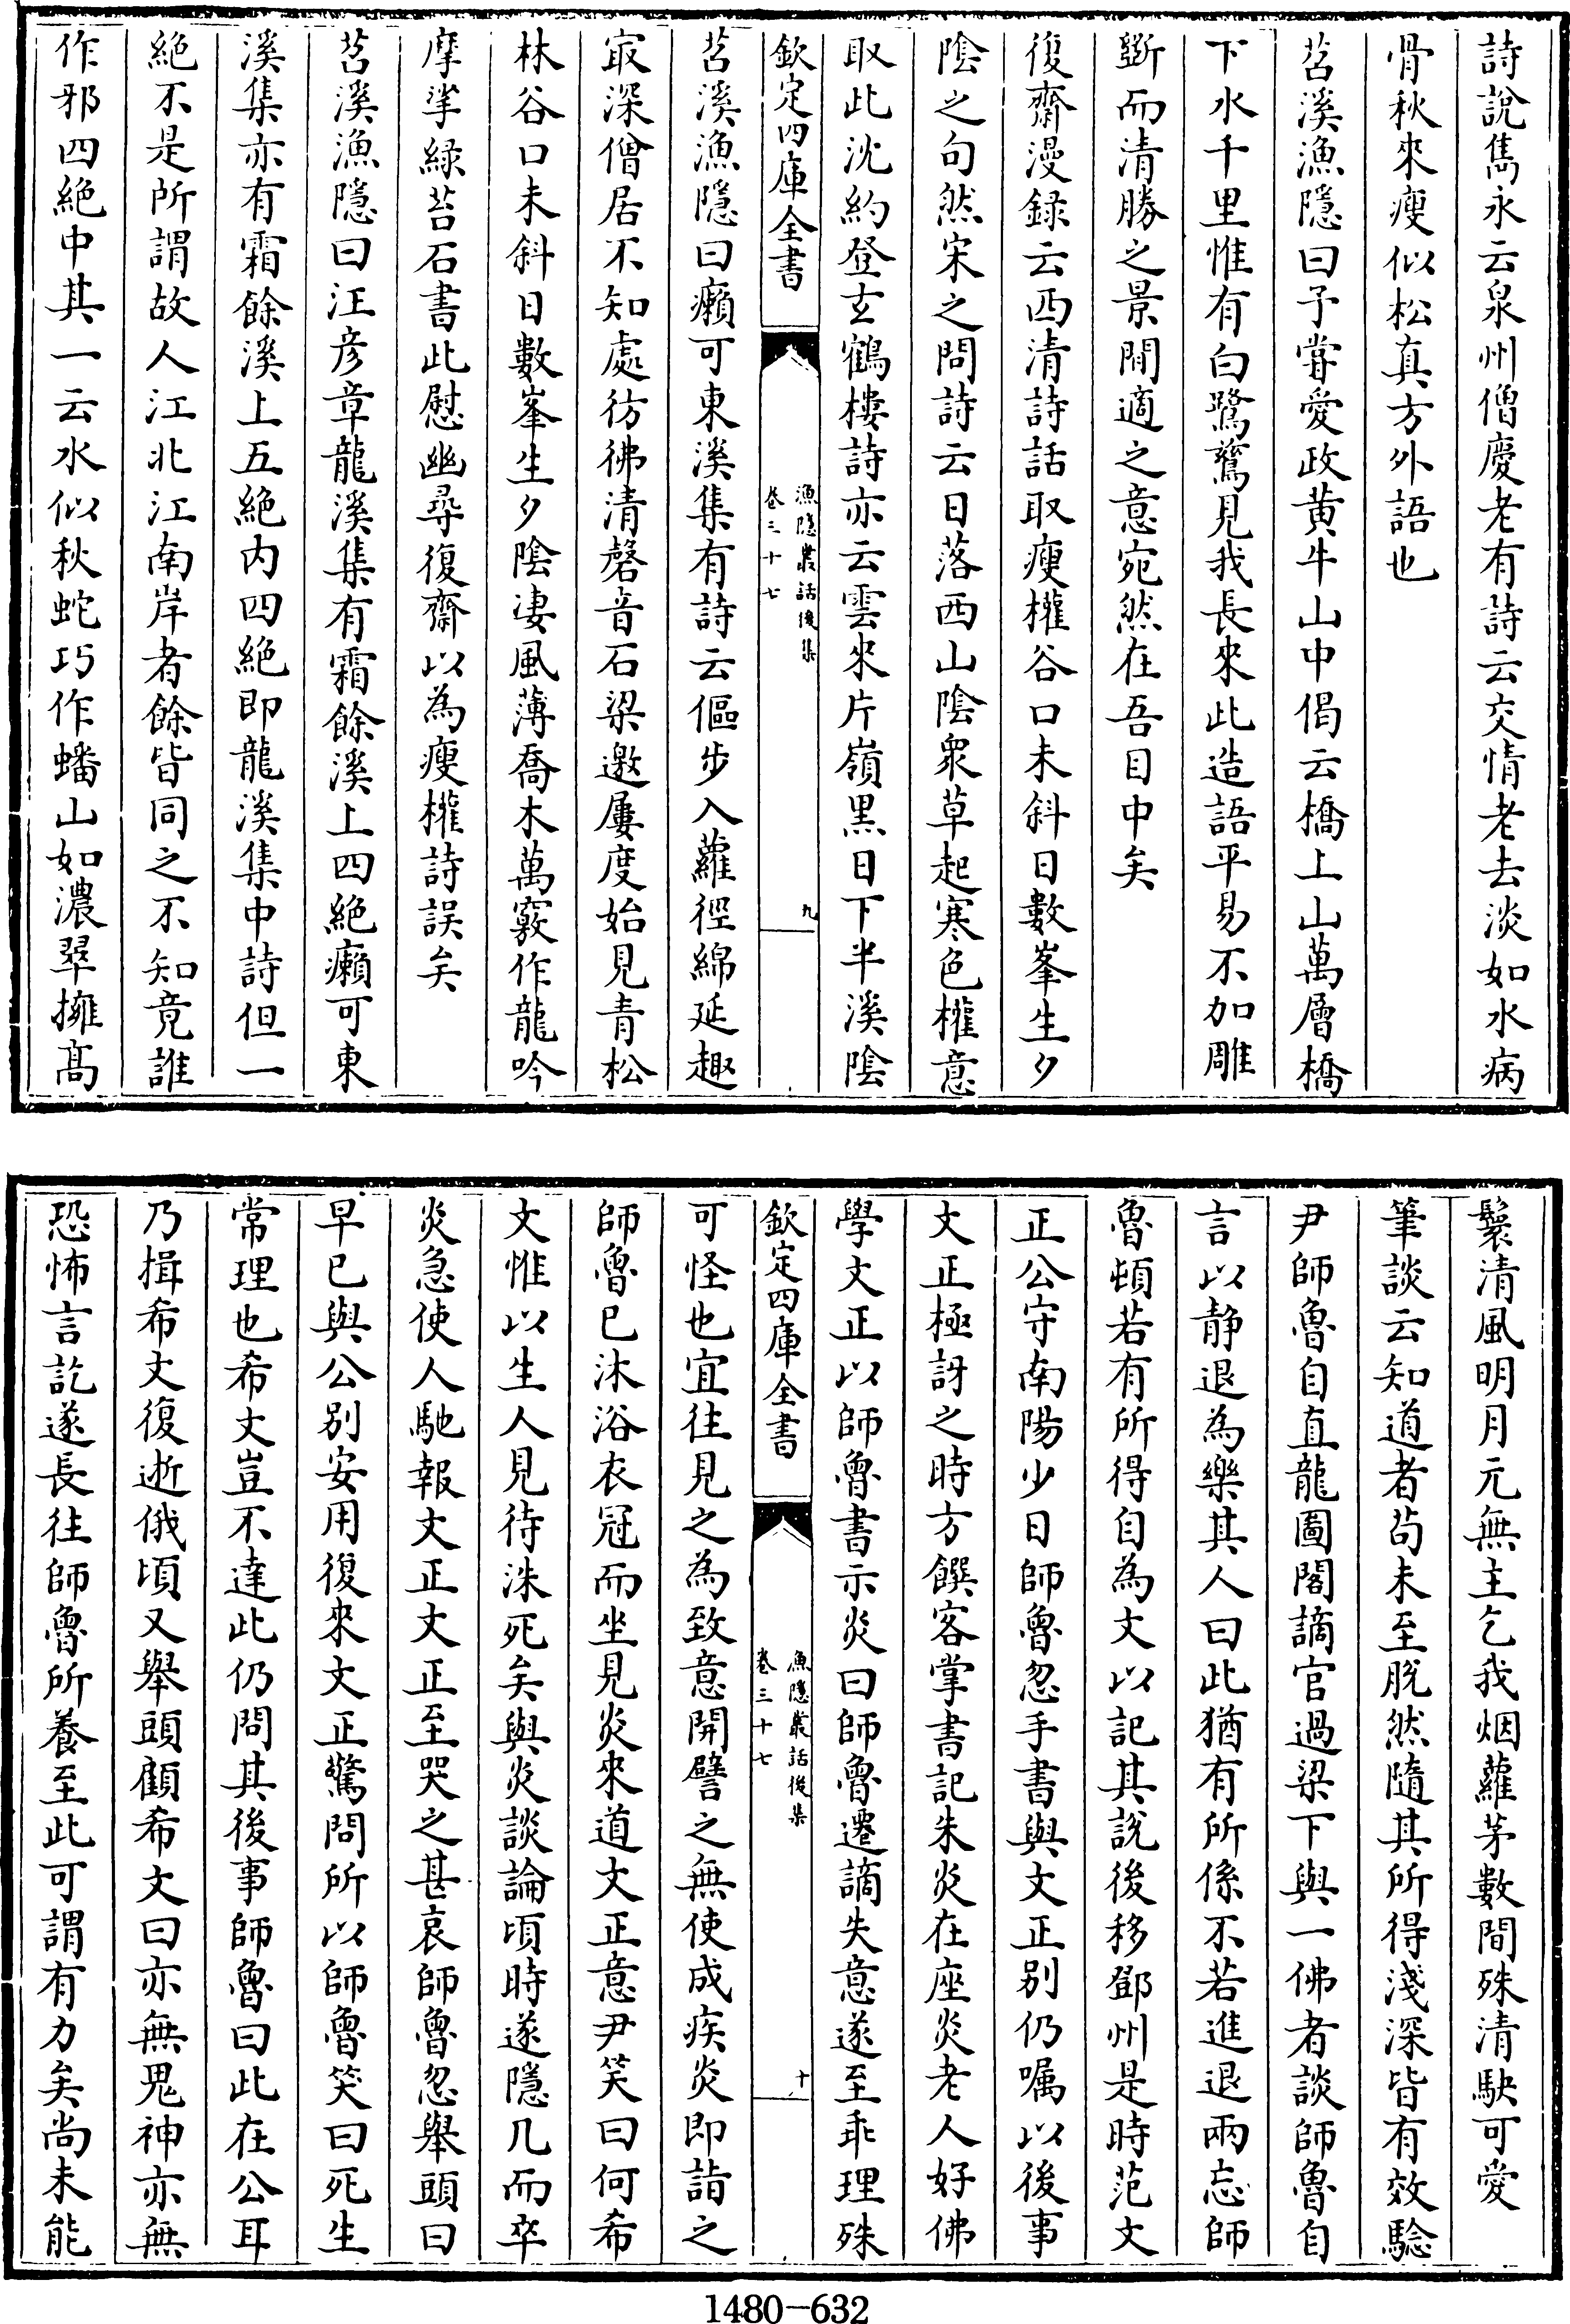 詩說雋永云泉州僧慶老有詩云交情老去淡如水病
骨秋來瘦似松真方外語也
苕溪漁隱曰予嘗愛政黄牛山中偈云橋上山萬層橋
下水千里惟有白鷺鷥見我長來此造語平易不加雕
斲而清勝之景閒適之意宛然在吾目中矣
復齋漫録云西清詩話取瘦權谷口未斜日數峯生夕
陰之句然宋之問詩云日落西山陰衆草起寒色權意
取此沈約登玄鶴樓詩亦云雲來片嶺黑日下半溪陰
欽定四庫全書
漁隱叢話後集
卷三十七
九
苕溪漁隱曰癩可東溪集有詩云傴步入蘿徑綿延趣
㝡深僧居不知處彷彿清磬音石梁邀屢度始見青松
林谷口未斜日數峯生夕陰凄風薄喬木萬竅作龍吟
摩挲緑苔石書此慰幽尋復齋以為瘦權詩誤矣
苕溪漁隱曰汪彦章龍溪集有霜餘溪上四絶癩可東
溪集亦有霜餘溪上五絶内四絶即龍溪集中詩但一
絶不是所謂故人江北江南岸者餘皆同之不知竟誰
作邪四絶中其一云水似秋蛇巧作蟠山如濃翠擁髙
鬟清風明月元無主乞我烟蘿茅數間殊清駃可愛
筆談云知道者苟未至脱然隨其所得淺深皆有效驗
尹師魯自直龍圖閣謫官過梁下與一佛者談師魯自
言以静退為樂其人曰此猶有所係不若進退兩忘師
魯頓若有所得自為文以記其說後移鄧州是時范文
正公守南陽少日師魯忽手書與文正别仍嘱以後事
文正極訝之時方饌客掌書記朱炎在座炎老人好佛
學文正以師魯書示炎曰師魯遷謫失意遂至乖理殊
欽定四庫全書
漁隱叢話後集
卷三十七
十
可怪也宜往見之為致意開譬之無使成疾炎即詣之
師魯已沐浴衣冠而坐見炎來道文正意尹笑曰何希
文惟以生人見待洙死矣與炎談論頃時遂隱几而卒
炎急使人馳報文正文正至哭之甚哀師魯忽舉頭曰
早已與公别安用復來文正驚問所以師魯笑曰死生
常理也希文豈不達此仍問其後事師魯曰此在公耳
乃揖希文復逝俄頃又舉頭顧希文曰亦無鬼神亦無
恐怖言訖遂長往師魯所養至此可謂有力矣尚未能
1480-632